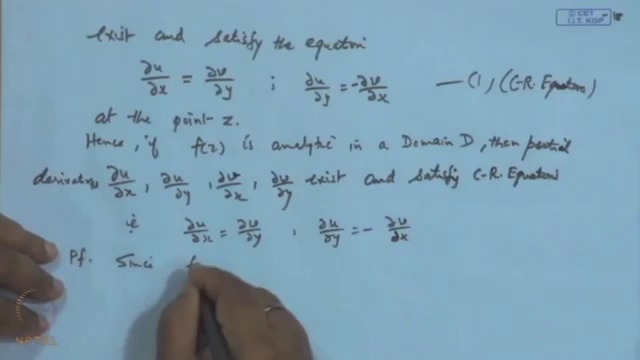 © CET
I.I.T. KGP
exist and satisfy the equation
∂u/∂x = ∂v/∂y ; ∂u/∂y = -∂v/∂x — (1) (C-R. Equations)
at the point z.
Hence, if f(z) is analytic in a Domain D, then partial
derivatives ∂u/∂x, ∂u/∂y, ∂v/∂x, ∂v/∂y exist and satisfy C-R. Equations
ie ∂u/∂x = ∂v/∂y , ∂u/∂y = - ∂v/∂x
Pf. Since f
NPTEL